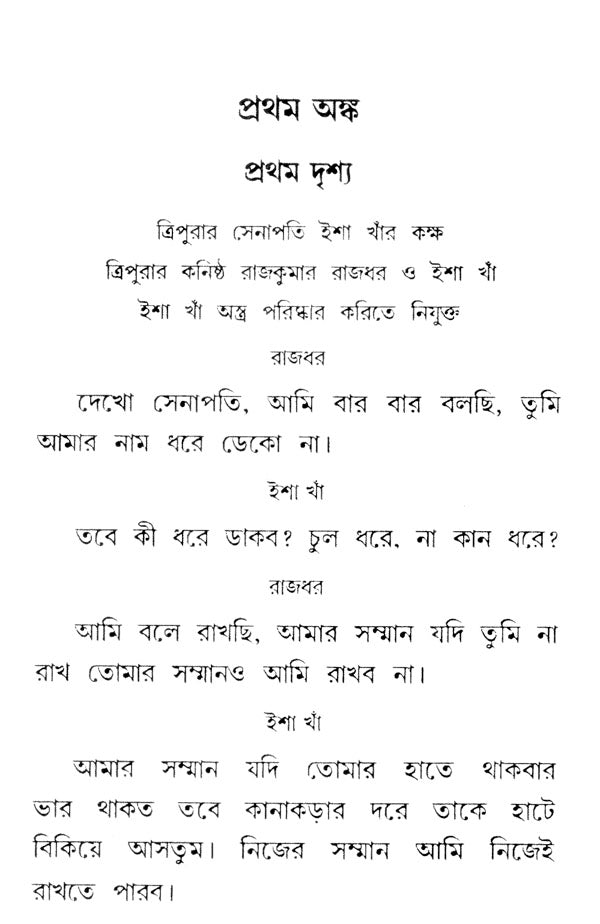 প্রথম অঙ্ক
প্রথম দৃশ্য
ত্রিপুরার সেনাপতি ইশা খাঁর কক্ষ
ত্রিপুরার কনিষ্ঠ রাজকুমার রাজধর ও ইশা খাঁ
ইশা খাঁ অস্ত্র পরিষ্কার করিতে নিযুক্ত
রাজধর
দেখো সেনাপতি, আমি বার বার বলছি, তুমি
আমার নাম ধরে ডেকো না।
ইশা খাঁ
তবে কী ধরে ডাকব? চুল ধরে, না কান ধরে?
রাজধর
আমি বলে রাখছি, আমার সম্মান যদি তুমি না
রাখ তোমার সম্মানও আমি রাখব না।
ইশা খাঁ
আমার সম্মান যদি তোমার হাতে থাকবার
ভার থাকত তবে কানাকড়ার দরে তাকে হাটে
বিকিয়ে আসতুম। নিজের সম্মান আমি নিজেই
রাখতে পারব।